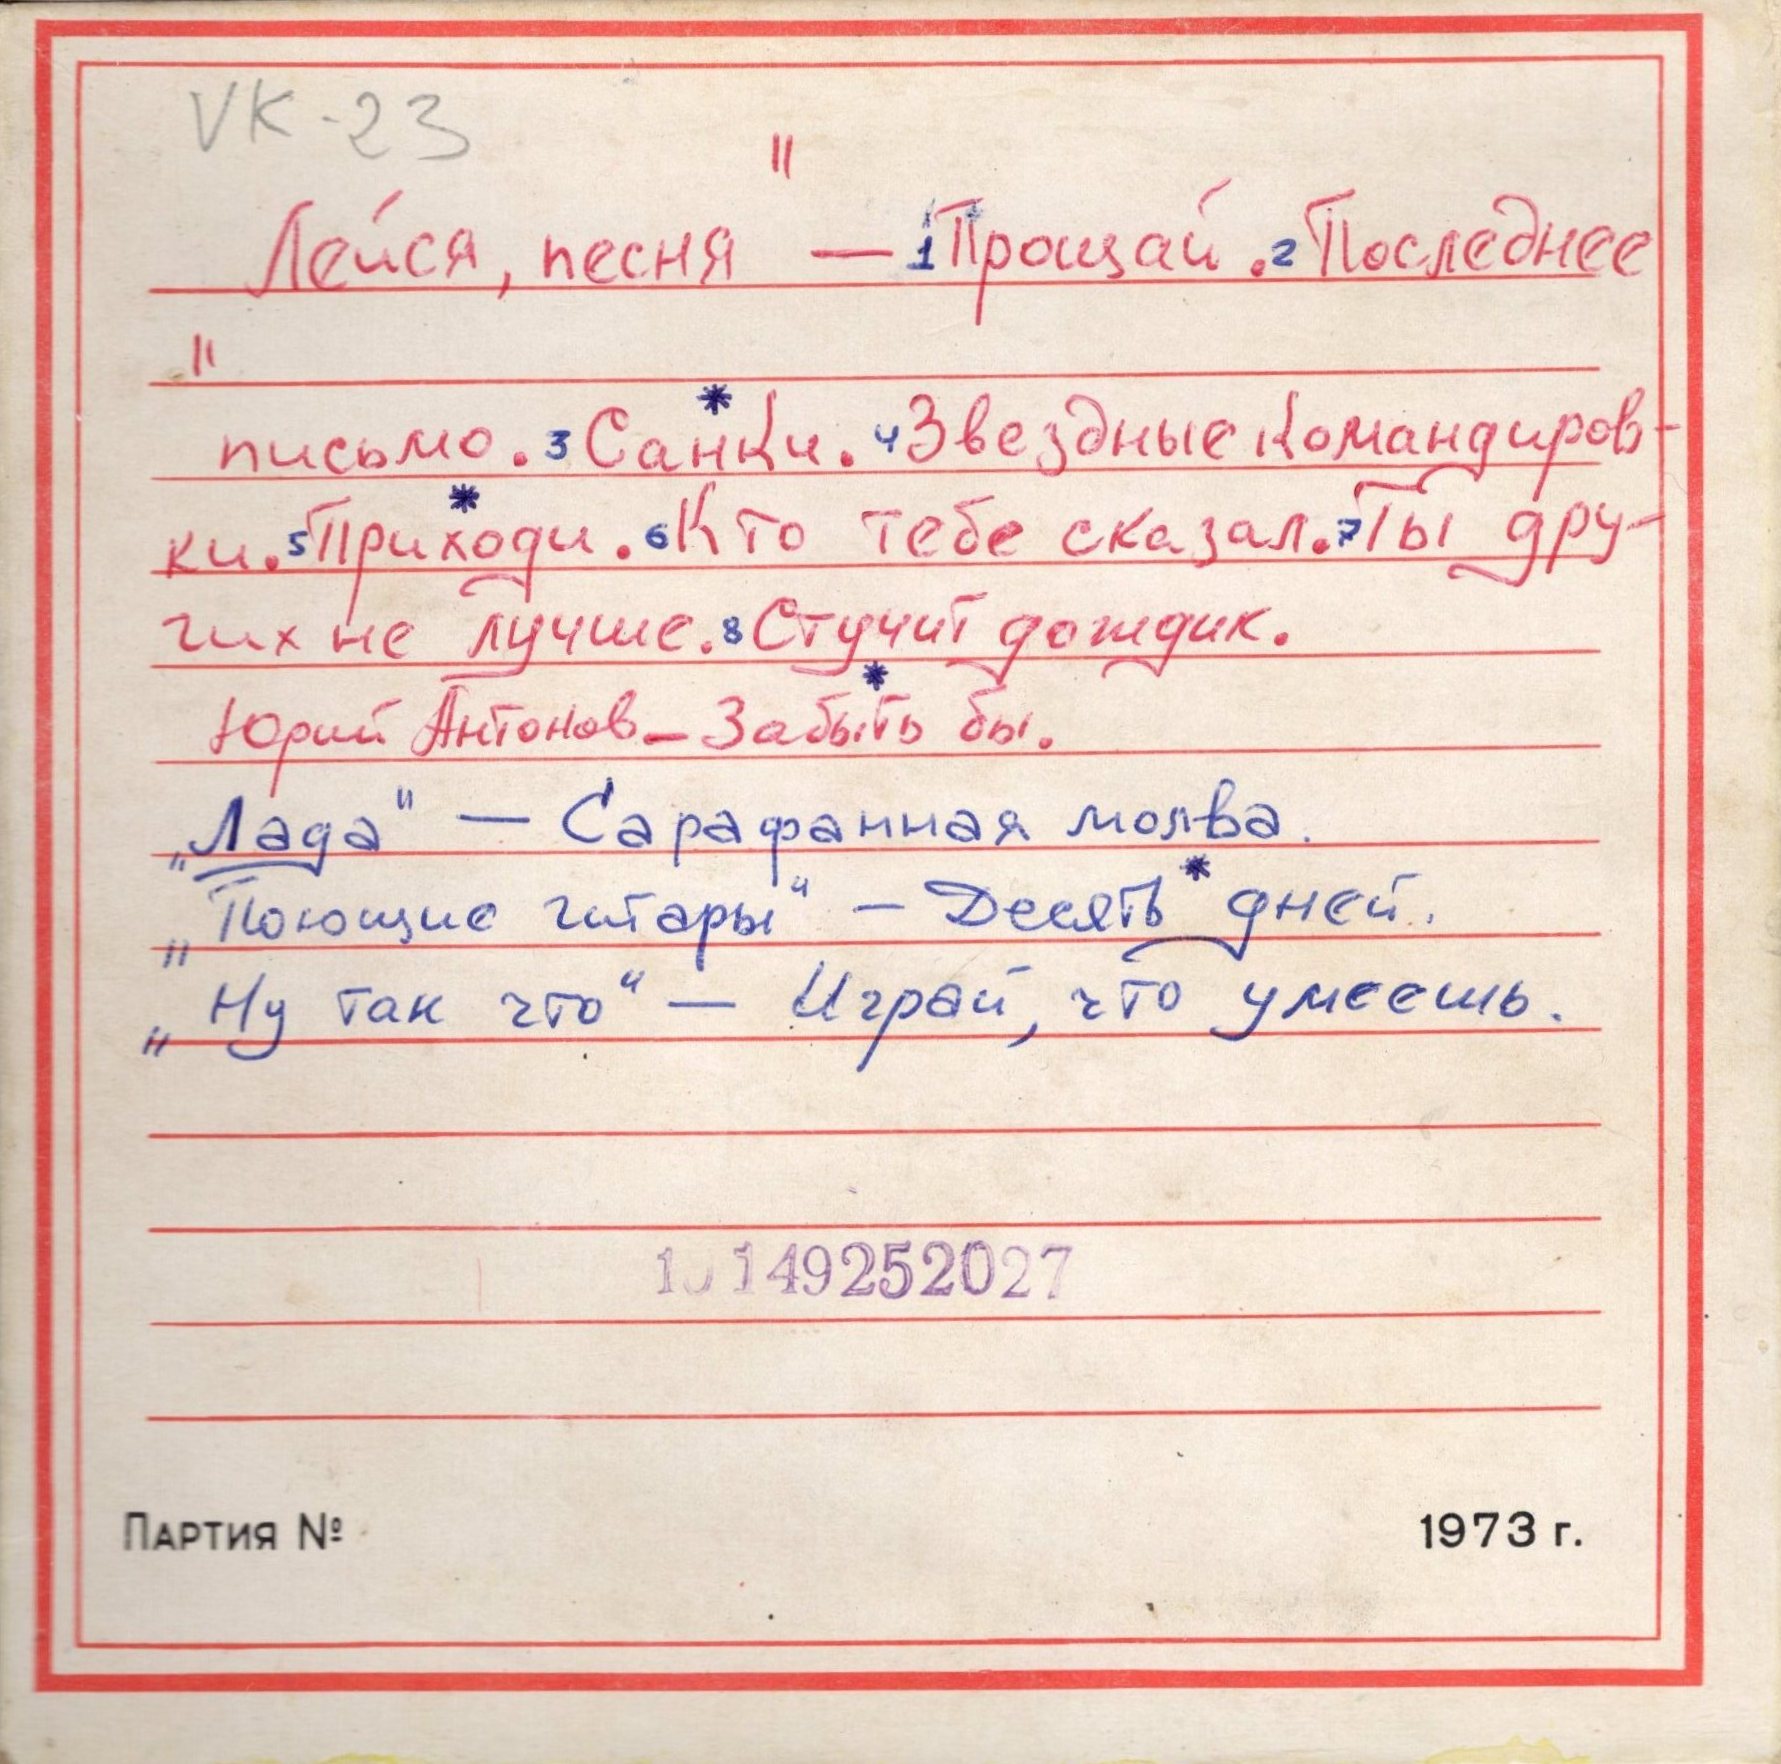 VK-23
"Лейся, песня" — 1 Прощай. 2 Последнее
письмо. 3 Санки.* 4 Звездные командиров-
ки. 5 Приходи.* 6 Кто тебе сказал. 7 Ты дру-
гих не лучше. 8 Стучит дождик.
Юрий Антонов – Забыть* бы.
„Лада" — Сарафанная молва.
„Поющие гитары" — Десять* дней.
„Ну так что" — Играй, что умеешь.
149252027
Партия №
1973 г.